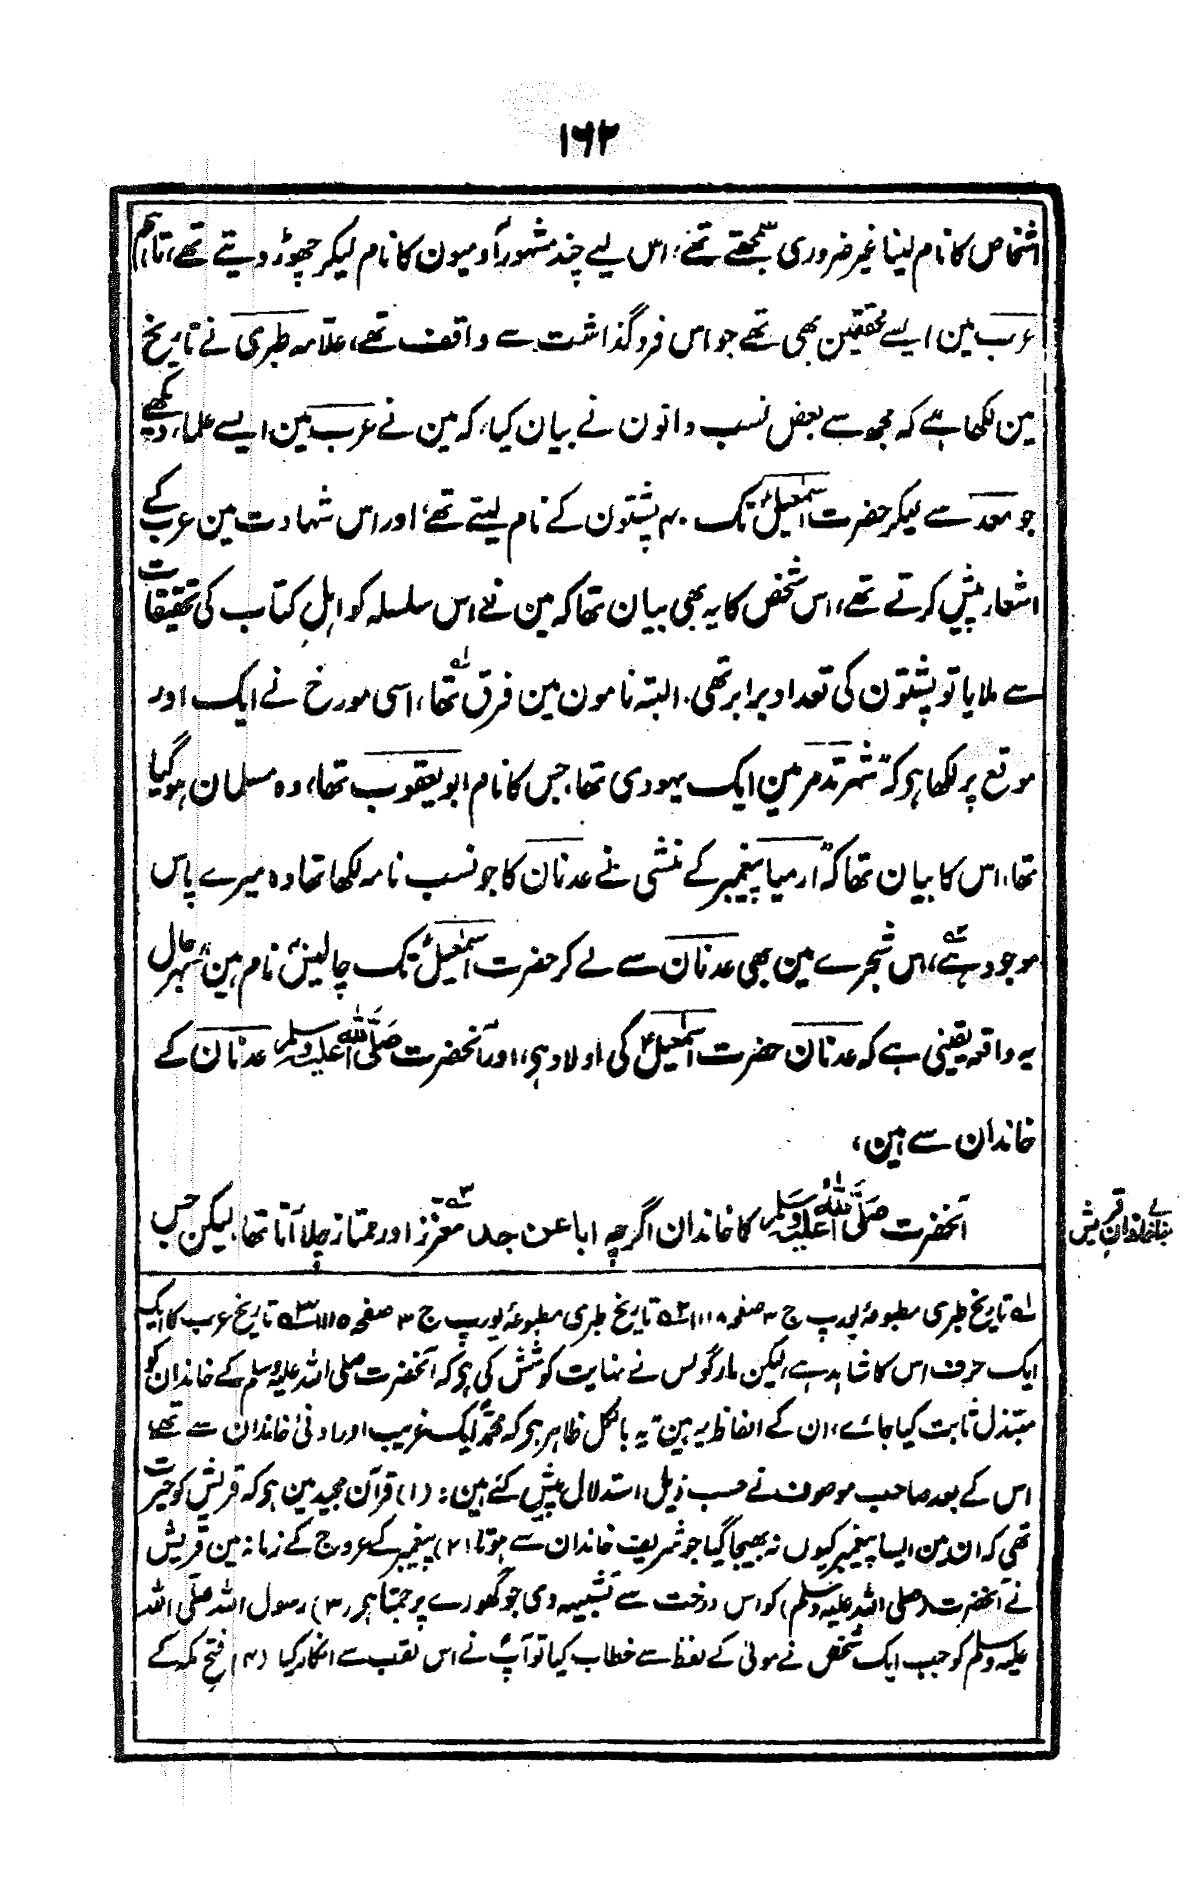 ۱۶۲
اشخاص کا نام لینا غیر ضروری سمجھتے تھے، اس لیے چند مشہور آدمیون کا نام لیکر چھوڑ دیتے تھے، تاہم
عرب مین ایسے محققین بھی تھے جو اس فروگذاشت سے واقف تھے، علامہ طبری نے تاریخ
مین لکھا ہے کہ مجھ سے بعض نسب دانون نے بیان کیا، کہ مین نے عرب مین ایسے علماء دیکھے
جو معد سے لیکر حضرت اسمٰعیلؑ تک ۴۰ پشتون کے نام لیتے تھے، اور اس شہادت مین عرب کے
اشعار پیش کرتے تھے، اس شخص کا یہ بھی بیان تھا کہ مین نے اس سلسلہ کو اہل کتاب کی تحقیقات
سے ملایا تو پشتون کی تعداد برابر تھی، البتہ نامون مین فرق تھا لہ، اسی مورخ نے ایک اور
موقع پر لکھا ہر کہ "شہر تدمر مین ایک یہودی تھا، جس کا نام ابو یعقوب تھا، وہ مسلمان ہوگیا
تھا، اس کا بیان تھا کہ "ارمیا پیغمبر کے منشی نے عدنان کا جو نسب نامہ لکھا تھا وہ میرے پاس
موجود ہے ۲ہ، اس شجرے مین بھی عدنان سے لے کر حضرت اسمٰعیلؑ تک چالیس نام ہین" بہرحال
یہ واقعہ یقینی ہے کہ عدنان حضرت اسمٰعیلؑ کی اولاد ہی، اور آنحضرت صَلَّی اللہُ عَلَیْہِ وَسَلَّم عدنان کے
خاندان سے ہین،
بنائے خاندان قریش
آنحضرت صَلَّی اللہُ عَلَیْہِ وَسَلَّم کا خاندان اگرچہ اباً عن جدٍ معزز ۳ہ اور ممتاز چلا آتا تھا، لیکن جس
لہ تاریخ طبری مطبوعۂ یورپ ج ۳ صفحہ ۱۱۱۸ ۲ہ تاریخ طبری مطبوعۂ یورپ ج ۳ صفحہ ۱۱۱۵ ۳ہ تاریخ عرب کا ایک
ایک حرف اس کا شاہد ہے، لیکن مارگولس نے نہایت کوشش کی ہر کہ آنحضرت صلی اللہ علیہ وسلم کے خاندان کو
مبتذل ثابت کیا جائے، ان کے الفاظ یہ ہین "یہ بالکل ظاہر ہر کہ محمدؐ ایک غریب اور ادنیٰ خاندان سے تھے"
اس کے بعد صاحب موصوف نے حسب ذیل استدلال پیش کئے ہین: (۱) قرآن مجید مین ہر کہ قریش کو حیرت
تھی کہ ان مین ایسا پیغمبر کیوں نہ بھیجا گیا جو شریف خاندان سے ہوتا (۲) پیغمبر کے عروج کے زمانہ مین قریش
نے آنحضرت (صلی اللہ علیہ وسلم) کو اس درخت سے تشبیہ دی جو گھورے پر جمتا ہر، (۳) رسول اللہ صلّی اللہ
علیہ وسلم کو جب ایک شخص نے مولیٰ کے لفظ سے خطاب کیا تو آپؐ نے اس لقب سے انکار کیا (۴) فتح مکہ کے